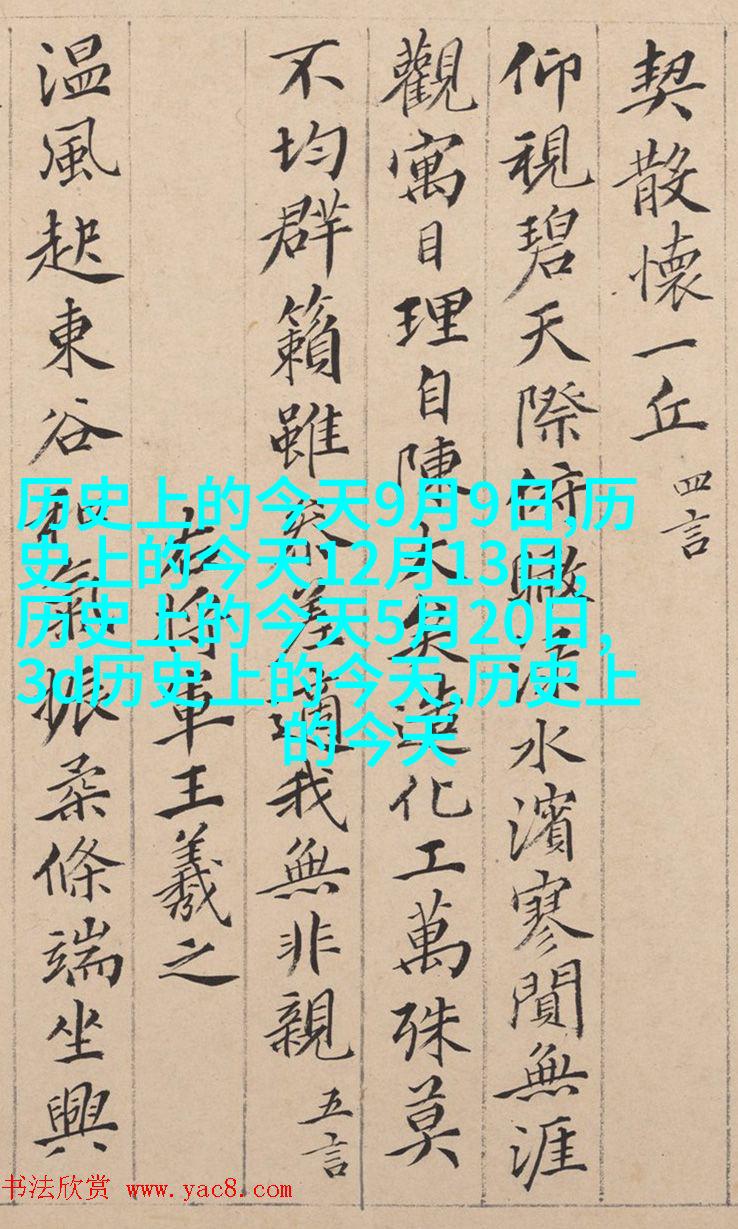 契散懷一丘 四言
仰視碧天際俯瞰淥水濱寥閴無涯
觀寓目理自陳大矣造化工萬殊莫
不均群籟雖參差適我無非親 五言
右將軍王羲之
温風起東谷和氣振柔條端坐興
历史上的今天9月9日,历
史上的今天12月13日,
历史上的今天5月20日,
3d历史上的今天,历史上
的今天
书法欣赏 www.yac8.com